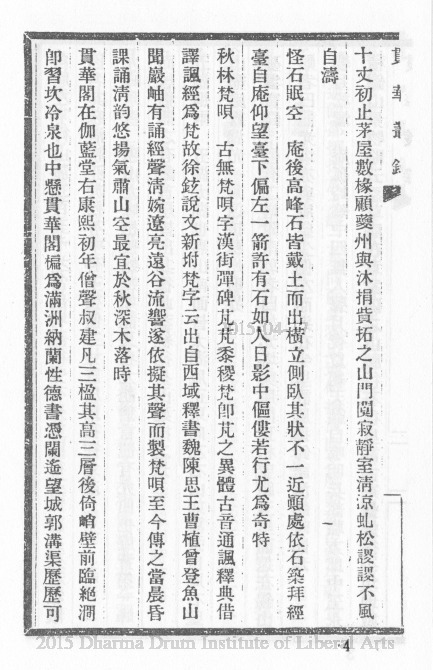 貫華叢錄
十丈初止茅屋數椽顧夔州與沐捐貲拓之山門閴寂靜室清涼虬松謖謖不風
自濤
怪石眠空　庵後高峰石皆戴土而出橫立側臥其狀不一近顚處依石築拜經
臺自庵仰望臺下偏左一箭許有石如人日影中傴僂若行尤爲奇特
秋林梵唄　古無梵唄字漢街彈碑芃芃黍稷梵卽芃之異體古音通諷釋典借
譯諷經爲梵故徐鉉說文新坿梵字云出自西域釋書魏陳思王曹植曾登魚山
聞巖岫有誦經聲淸婉遼亮遠谷流響遂依擬其聲而製梵唄至今傳之當晨昏
課誦淸韵悠揚氣肅山空最宜於秋深木落時
貫華閣在伽藍堂右康熙初年僧聲叔建凡三楹其高三層後倚峭壁前臨絕澗
卽習坎冷泉也中懸貫華閣楄爲滿洲納蘭性德書憑闌遙望城郭溝渠歷歷可
4
2015-04-
2015 Dharma Drum Institute of Liberal Arts